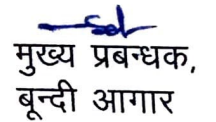 मुख्य प्रबन्धक,
बून्दी आगार